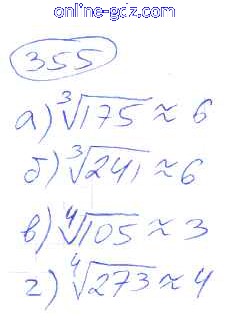 online-gdz.com
355
а) ∛175 ≈ 6
б) ∛241 ≈ 6
в) ∜105 ≈ 3
г) ∜273 ≈ 4